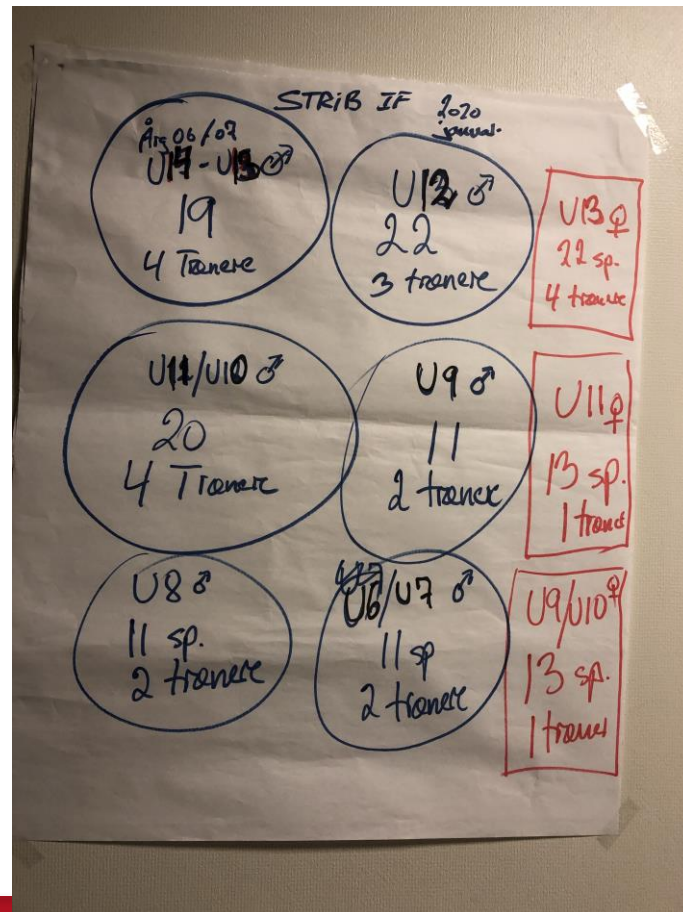 STRIB IF 2020
januar.
Årg 06/07
U14 - U13 ♂
19
4 Trænere
U12 ♂
22
3 trænere
U13 ♀
22 sp.
4 trænere
U11/U10 ♂
20
4 Trænere
U9 ♂
11
2 trænere
U11 ♀
13 sp.
1 træner
U8 ♂
11 sp.
2 trænere
U6/U7 ♂
11 sp
2 trænere
U9/U10 ♀
13 sp.
1 træner